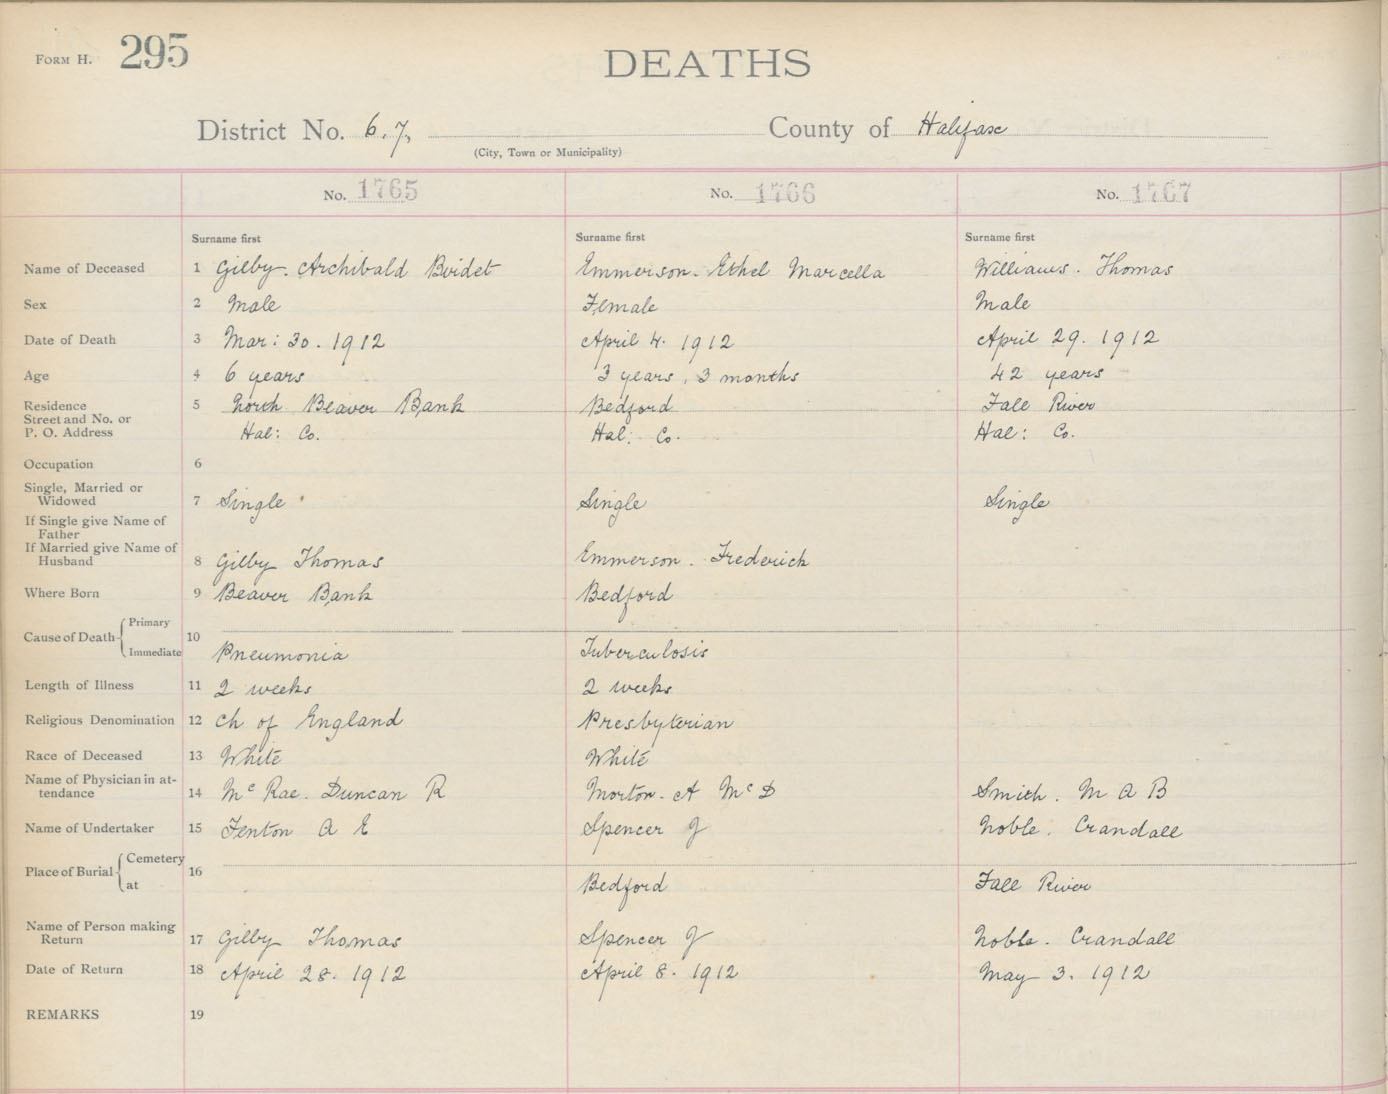 FORM H. 295
DEATHS
District No. 6.7, County of Halifax
(City, Town or Municipality)
No. 1765 No. 1766 No. 1767
Surname first Surname first Surname first
Name of Deceased 1 Gilby. Archibald Emmerson. Ethel Marcella Williams. Thomas
Sex 2 Male Female Male
Date of Death 3 Mar: 30. 1912 April 4. 1912 April 29. 1912
Age 4 6 years 3 years, 3 months 42 years
Residence 5 North Beaver Bank Bedford Fall River
Street and No. or
P. O. Address Hal: Co. Hal: Co. Hal: Co.
Occupation 6
Single, Married or
Widowed 7 Single Single Single
If Single give Name of
Father
If Married give Name of
Husband 8 Gilby Thomas Emmerson. Frederick
Where Born 9 Beaver Bank Bedford
Cause of Death Primary 10
Immediate Pneumonia Tuberculosis
Length of Illness 11 2 weeks 2 weeks
Religious Denomination 12 Ch of England Presbyterian
Race of Deceased 13 White White
Name of Physician in at-
tendance 14 Mc Rae. Duncan R Morton. A Mc D Smith. M A B
Name of Undertaker 15 Fenton A E Spencer J Noble. Crandall
Place of Burial Cemetery 16
at Bedford Fall River
Name of Person making
Return 17 Gilby Thomas Spencer J Noble. Crandall
Date of Return 18 April 28. 1912 April 8. 1912 May 3. 1912
REMARKS 19